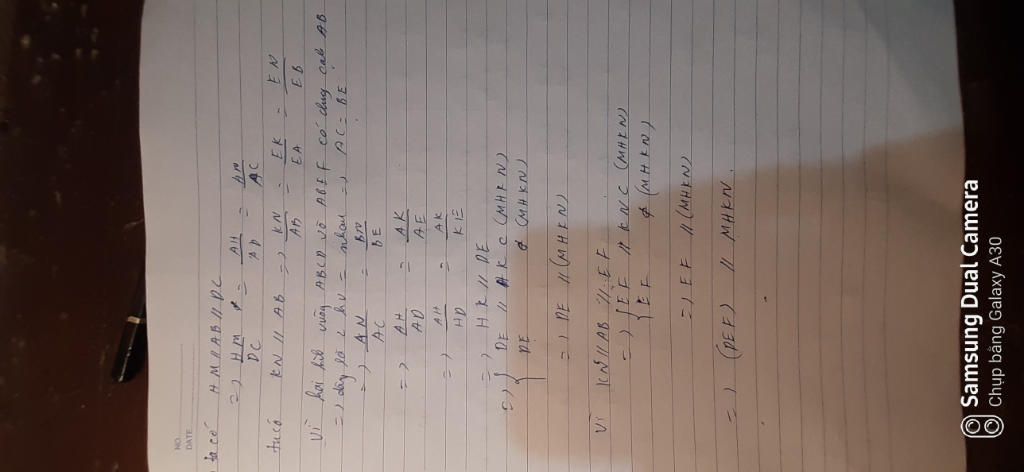 NO.
DATE
ta có HM // AB // DC
=> HM/DC = AH/AD = AM/AC
ta có KN // AB => KN/AB = EK/EA = EN/EB
Vì hai hình vuông ABCD và ABEF có chung cạnh AB
=> đây là 2 hv = nhau => AC = BE
=> AN/AC = BN/BE
=> AH/AD = AK/AE
=> AH/HD = AK/KE
=> HK // DE
=> { DE // HK ⊂ (MHKN)
DE ⊄ (MHKN)
=> DE // (MHKN)
Vì KN // AB // EF
=> { EF // KN ⊂ (MHKN)
EF ⊄ (MHKN)
=> EF // (MHKN)
=> (DEF) // MHKN.
Samsung Dual Camera
Chụp bằng Galaxy A30